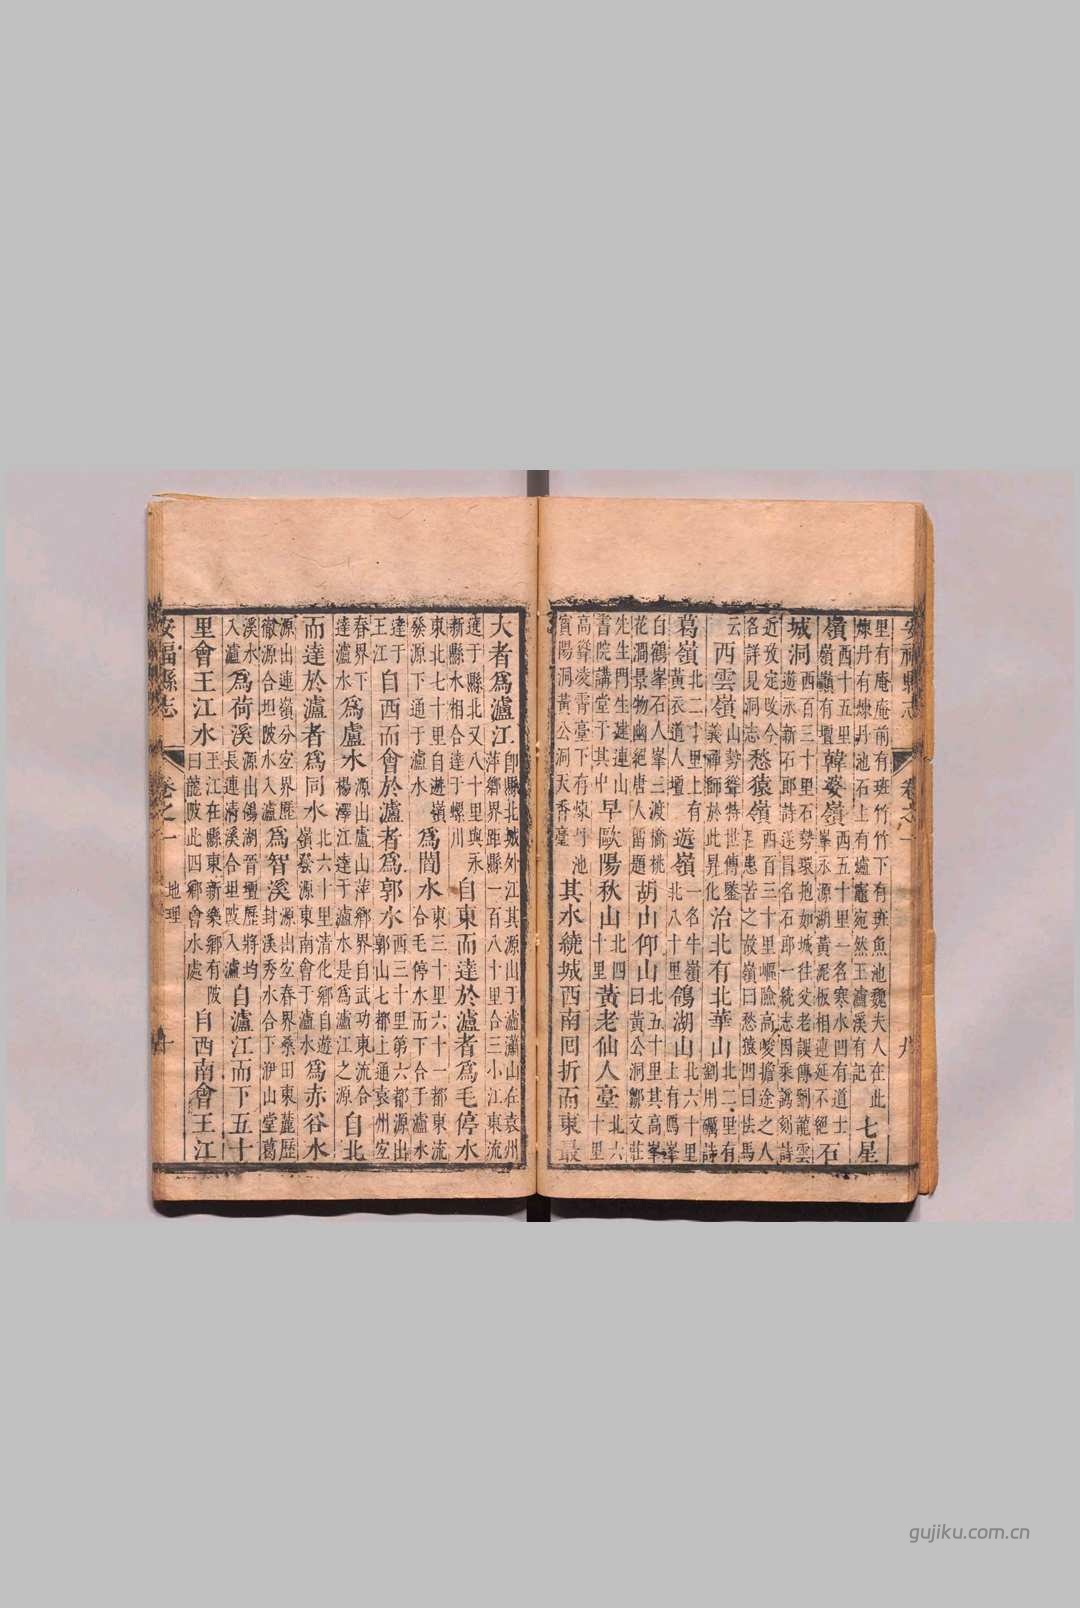 安福縣志 卷之一 九
里有庵庵前有班竹竹下有班魚池魏夫人在此
煉丹有煉丹池石上有爐竈宛然王瀘溪有記 七星
嶺西十五里嶺有壇 韓婆嶺西五十里一名寒水凹有道士 石
城洞西百三十里石勢環抱如城往父老誤傳劉龍雲
遊永新石郎詩遂冒名石郎一統志因乘譌刻詩
近攷定改今名詳見洞志 愁猿嶺西百三十里嶇險高峻擔途之人
苦之故嶺曰愁猿凹曰怯馬
云 西雲嶺山勢聳特世傳鑒義禪師於此昇化 治北有北華山北二里有劉用礪詩
葛嶺北二十里上有黃衣道人壇 遊嶺一名牛嶺北八十里 鴿湖山北六十里上有鴈峯
白鶴峯石人峯三渡橋桃
花澗景物幽絕唐人留題 胡山仰山北五十里其高峯曰黃公洞鄒文莊
先生門生建連山
書院講堂于其中 早歐陽秋山北四十里 黃老仙人臺北六十里
高聳凌霄臺下有煉丹池
賓陽洞黃公洞天香臺 其水繞城西南囘折而東最
大者爲瀘江卽縣北城外江其源出于瀘瀟山在袁州
萍鄉界距縣一百八十里合三小江東流
遶于縣北又八十里與永
新縣水相合達于螺川 自東而達於瀘者爲毛停水
東北七十里自遊嶺
發源下通于瀘水 爲閻水東三十里六十一都東流
合毛停水而下合于瀘水
達于王江 自西而會於瀘者爲郭水西三十里第六都源出
郭山七都上通袁州安
春界下達瀘水 爲盧水源出盧山萍鄉界自武功東流合
楊澤江達于瀘水是爲瀘江之源 自北
而達於瀘者爲同水北六十里清化鄉自遊
嶺發源東南會于瀘水 爲赤谷水
源出連嶺分安界歷
徹源合坦陂水入瀘 爲智溪源出安春界桑田東麓歷
封溪秀水合于洢山堂葛
溪水入瀘 爲荷溪源出鴿湖晉壇歷將均
長連清溪合坦陂入瀘 自瀘江而下五十
里會王江水王江在縣東新樂鄉有陂
曰蘢陂此四鄉會水處 自西南會王江
安福縣志 卷之一 地理 十